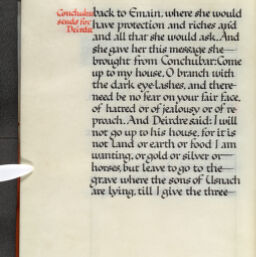 Conchubar
sends for
Deirdre
back to Emain, where she would
have protection and riches and
and all that she would ask. And
she gave her this message she
brought from Conchubar: Come
up to my house, O branch with
the dark eye-lashes, and there
need be no fear on your fair face,
of hatred or of jealousy or of re-
proach. And Deirdre said: I will
not go up to his house, for it is
not land or earth or food I am
wanting, or gold or silver or
horses, but leave to go to the
grave where the sons of Usnach
are lying, till I give the three